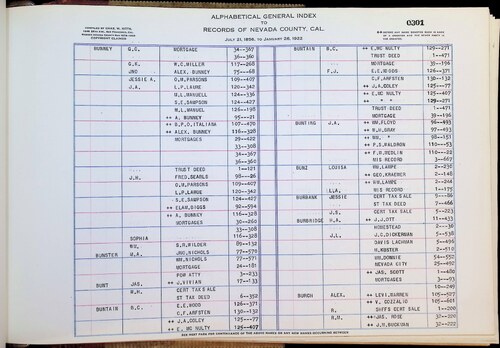 ALPHABETICAL GENERAL INDEX
TO
RECORDS OF NEVADA COUNTY, CAL.
JULY 21, 1856, TO JANUARY 26, 1922.
0301
BUNNEY G.C. MORTGAGE 34--367
36--360
G.H. W.C. MILLER 117--268
JNO ALEX. BUNNEY 75--68
JESSIE A. O.M. PARSONS 109--407
J.A. L.P. LAURE 120--342
H.L. MANUELL 124--536
S.E. SAMPSON 124--427
M.L. MANUEL 126--198
++ A. BUNNEY 95--21
++ B.P.D. ITALIANA 107--470
++ ALEX. BUNNEY 116--328
MORTGAGES 29--422
33--308
34--367
36--360
TRUST DEED 1--121
J.H. FRED. SEARLS 98--26
O.M. PARSONS 109--407
L.P. LARUE 120--342
S.E. SAMPSON 124--427
++ ELAM BIGGS 92--594
++ A. BUNNEY 116--328
MORTGAGES 30--260
33--308
SOPHIA 116--328
WM. S.R. WILDER 89--132
BUNSTER W.A. JNO NICHOLS 77--570
WM. NICHOLS 77--571
MORTGAGE 24--181
POW ATTY 3--233
BUNT JAS. ++ J. VIVIAN 17--133
W.H. CERT TAX SALE
ST TAX DEED 6--352
BUNTAIN B.C. E.E. WOOD 126--371
C.F. ARFSTEN 130--132
++ J.A. COLEY 125--77
++ E. MC NULTY 125--407
BUNTAIN B.C. ++ E. MC NULTY 129--271
TRUST DEED 1--471
MORTGAGE 39--196
F.J. E.E. WOOD 126--371
C.F. ARFSTEN 130--132
++ J.A. COLEY 125--77
++ E. MC NULTY 125--407
++ " " 129--271
TRUST DEED 1--471
MORTGAGE 39--196
BUNTING J.A. ++ WM. FLOYD 96--493
++ W.H. GRAY 97--423
++ WM. " 98--551
++ P.S. WALDRON 110--53
++ F.S. MEDLIN 110--22
MIS RECORD 3--667
BUNZ LOUISA WM. LAMPE 2--232
++ GEO. KRAEMER 2--148
++ WM. LAMPE 2--244
L.A. MIS RECORD 1--175
BURBANK JESSIE CERT TAX SALE
ST TAX DEED 7--466
J.S. CERT TAX SALE 5--223
BURBRIDGE W.A. ++ J.J. OTT 11--433
HOMESTEAD 2--36
J.L. J.C. DICKERMAN 5--538
DAVIS LACHMAN 5--495
H. KOSTER 2--510
WM. DONNIE 54--552
NEVADA CITY 25--492
++ JAS. SCOTT 1--480
MORTGAGES 3--93
10--249
BURCH ALEX. ++ LEVI. BARNES 105--127
++ V. COZZALIO 105--601
R. SHFFS CERT SALE 1--200
R.H. ++ JAS. ROSE 32--220
++ J.M. BUCKMAN 32--222